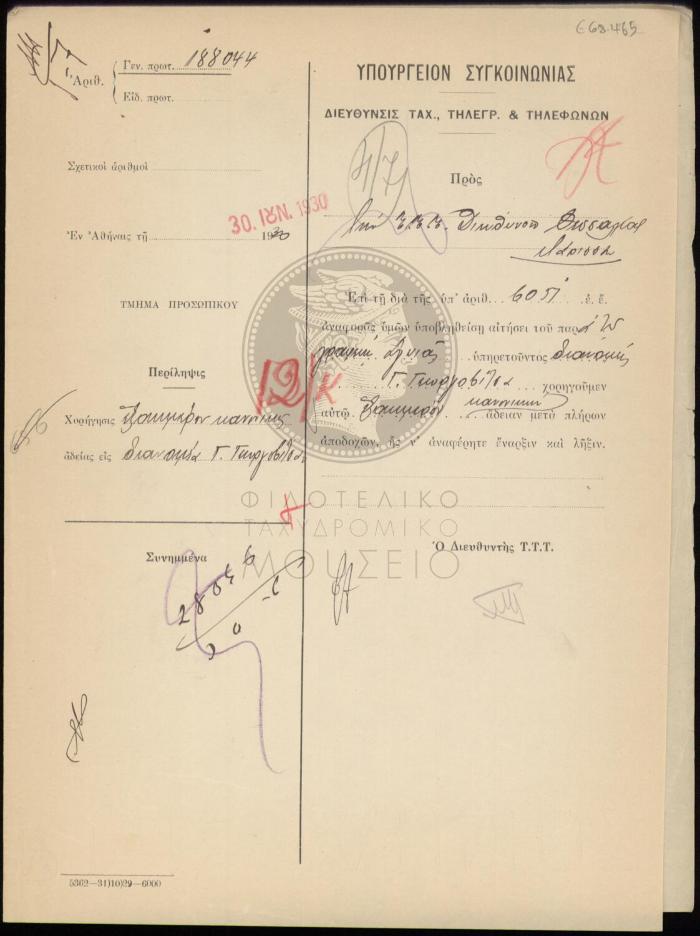 668.465
Ἀριθ.
Γεν. πρωτ. 188044
Εἰδ. πρωτ.
Σχετικοὶ ἀριθμοὶ
30. ΙΟΥΝ. 1930
Ἐν Ἀθήναις τῇ 1930
ΤΜΗΜΑ ΠΡΟΣΩΠΙΚΟΥ
Περίληψις
Χορήγησις ἑξαημέρου κανονικῆς
ἀδείας εἰς διανομέα Γ. Γεωργοβίτσα
Συνημμένα
28046
5362—31)10)29—6000
ΥΠΟΥΡΓΕΙΟΝ ΣΥΓΚΟΙΝΩΝΙΑΣ
ΔΙΕΥΘΥΝΣΙΣ ΤΑΧ., ΤΗΛΕΓΡ. & ΤΗΛΕΦΩΝΩΝ
4/7
Πρὸς
Τὴν Τ.Τ.Τ. Διεύθυνσιν Θεσσαλίας
Λάρισσα
Ἐπὶ τῇ διὰ τῆς ὑπ' ἀριθ. 6051 ἐ. ἔ.
ἀναφορᾶς ὑμῶν ὑποβληθείσῃ αἰτήσει τοῦ παρὰ τῷ
γραφείῳ Ἀγυιᾶς ὑπηρετοῦντος διανομέως
Γ. Γεωργοβίτσα χορηγοῦμεν
αὐτῷ ἑξαήμερον κανονικὴν ἄδειαν μετὰ πλήρων
ἀποδοχῶν, ἧς ν' ἀναφέρητε ἔναρξιν καὶ λῆξιν.
12/κ
Ὁ Διευθυντὴς Τ.Τ.Τ.
ΦΙΛΟΤΕΛΙΚΟ
ΤΑΧΥΔΡΟΜΙΚΟ
ΜΟΥΣΕΙΟ